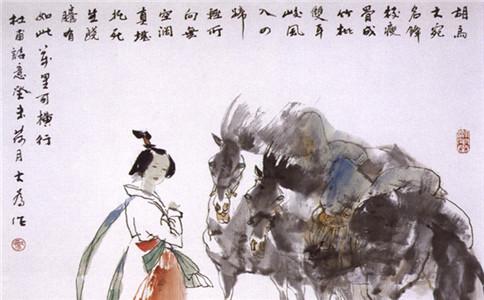 胡馬
大宛
名鋒
稜瘦
骨成
竹批
雙耳
峻風
入四
蹄
輕所
向無
空闊
真堪
托死
生驍
騰有
如此萬里可橫行
杜甫詩意癸未荷月大為作